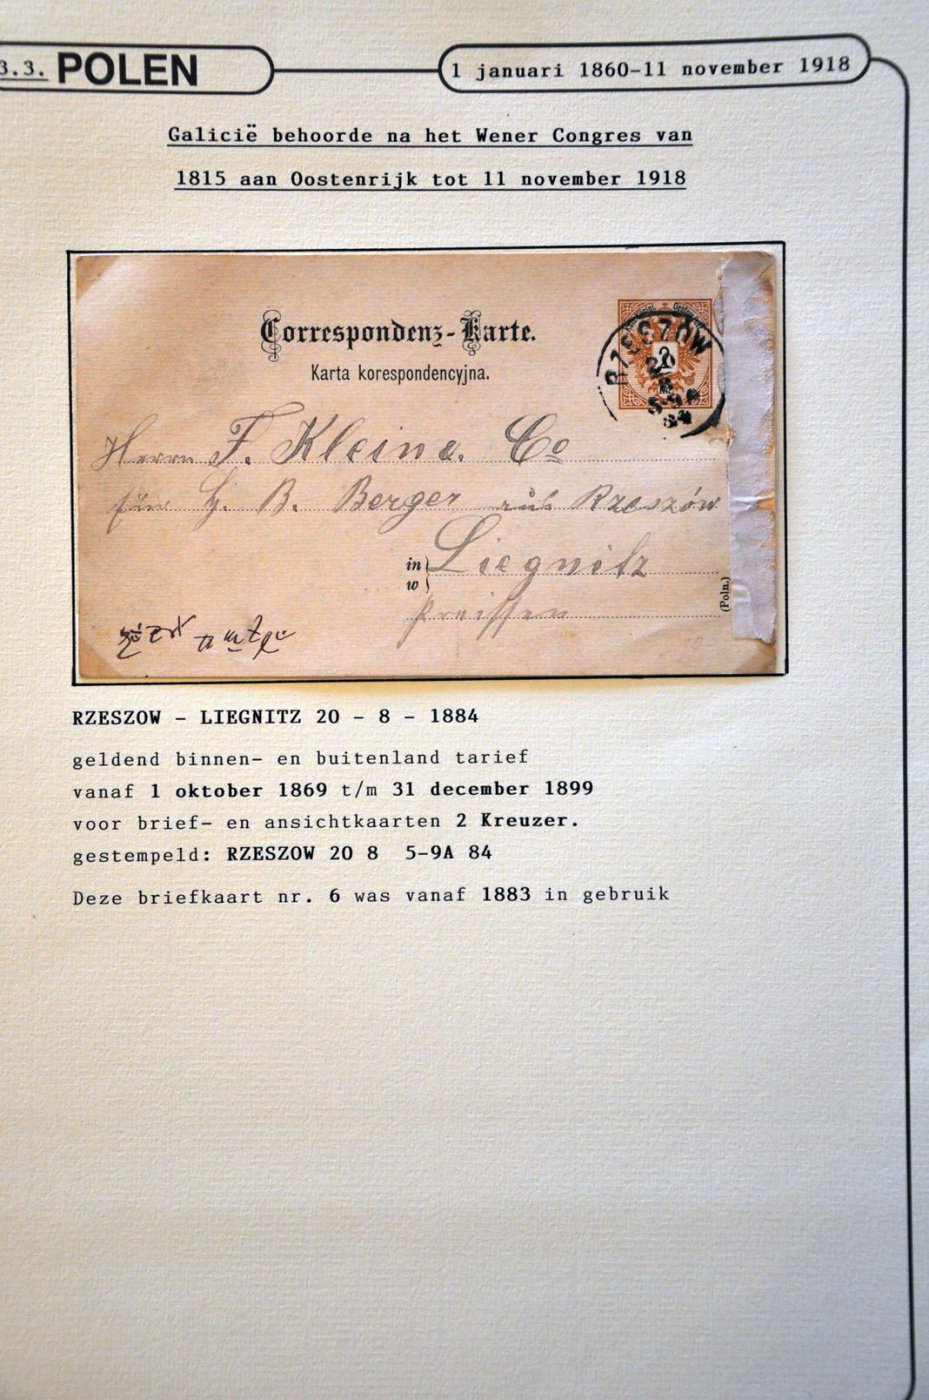 3.3. POLEN
1 januari 1860-11 november 1918
Galicië behoorde na het Wener Congres van
1815 aan Oostenrijk tot 11 november 1918
Correspondenz-Karte.
Karta korespondencyjna.
RZESZOW
20
8
5-9A
84
Herrn F. Klein &. Co
für H. B. Berger aus Rzeszów
in Liegnitz
w
Preissen
(Poln.)
RZESZOW - LIEGNITZ 20 - 8 - 1884
geldend binnen- en buitenland tarief
vanaf 1 oktober 1869 t/m 31 december 1899
voor brief- en ansichtkaarten 2 Kreuzer.
gestempeld: RZESZOW 20 8 5-9A 84
Deze briefkaart nr. 6 was vanaf 1883 in gebruik